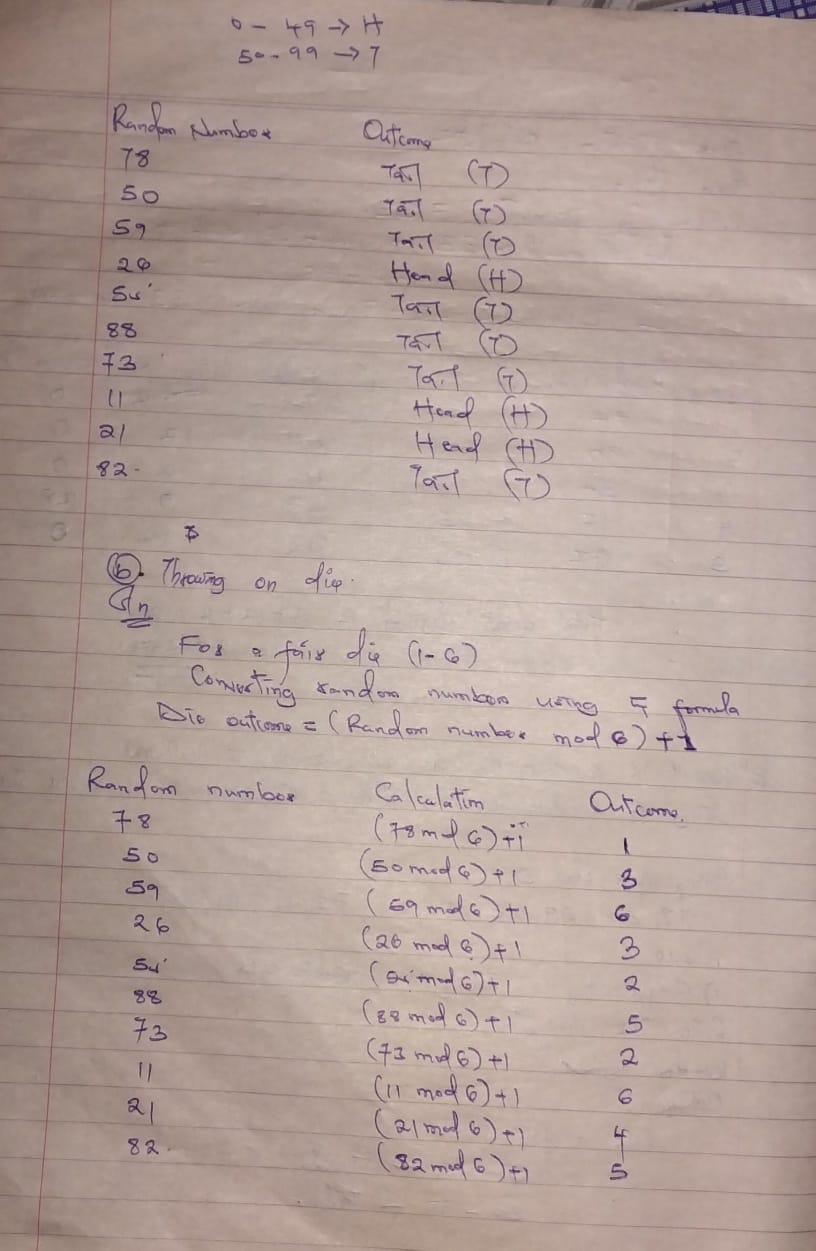 0 - 49 → H
50 - 99 → T
Random Number Outcome
78 Tail (T)
50 Tail (T)
59 Tail (T)
26 Head (H)
55 Tail (T)
88 Tail (T)
73 Tail (T)
11 Head (H)
21 Head (H)
82. Tail (T)
(b). Throwing on die.
For a fair die (1-6)
Converting random numbers using formula
Die outcome = (Random number mod 6) + 1
Random number Calculation Outcome.
78 (78 mod 6) + 1 1
50 (50 mod 6) + 1 3
59 (59 mod 6) + 1 6
26 (26 mod 6) + 1 3
55 (55 mod 6) + 1 2
88 (88 mod 6) + 1 5
73 (73 mod 6) + 1 2
11 (11 mod 6) + 1 6
21 (21 mod 6) + 1 4
82. (82 mod 6) + 1 5